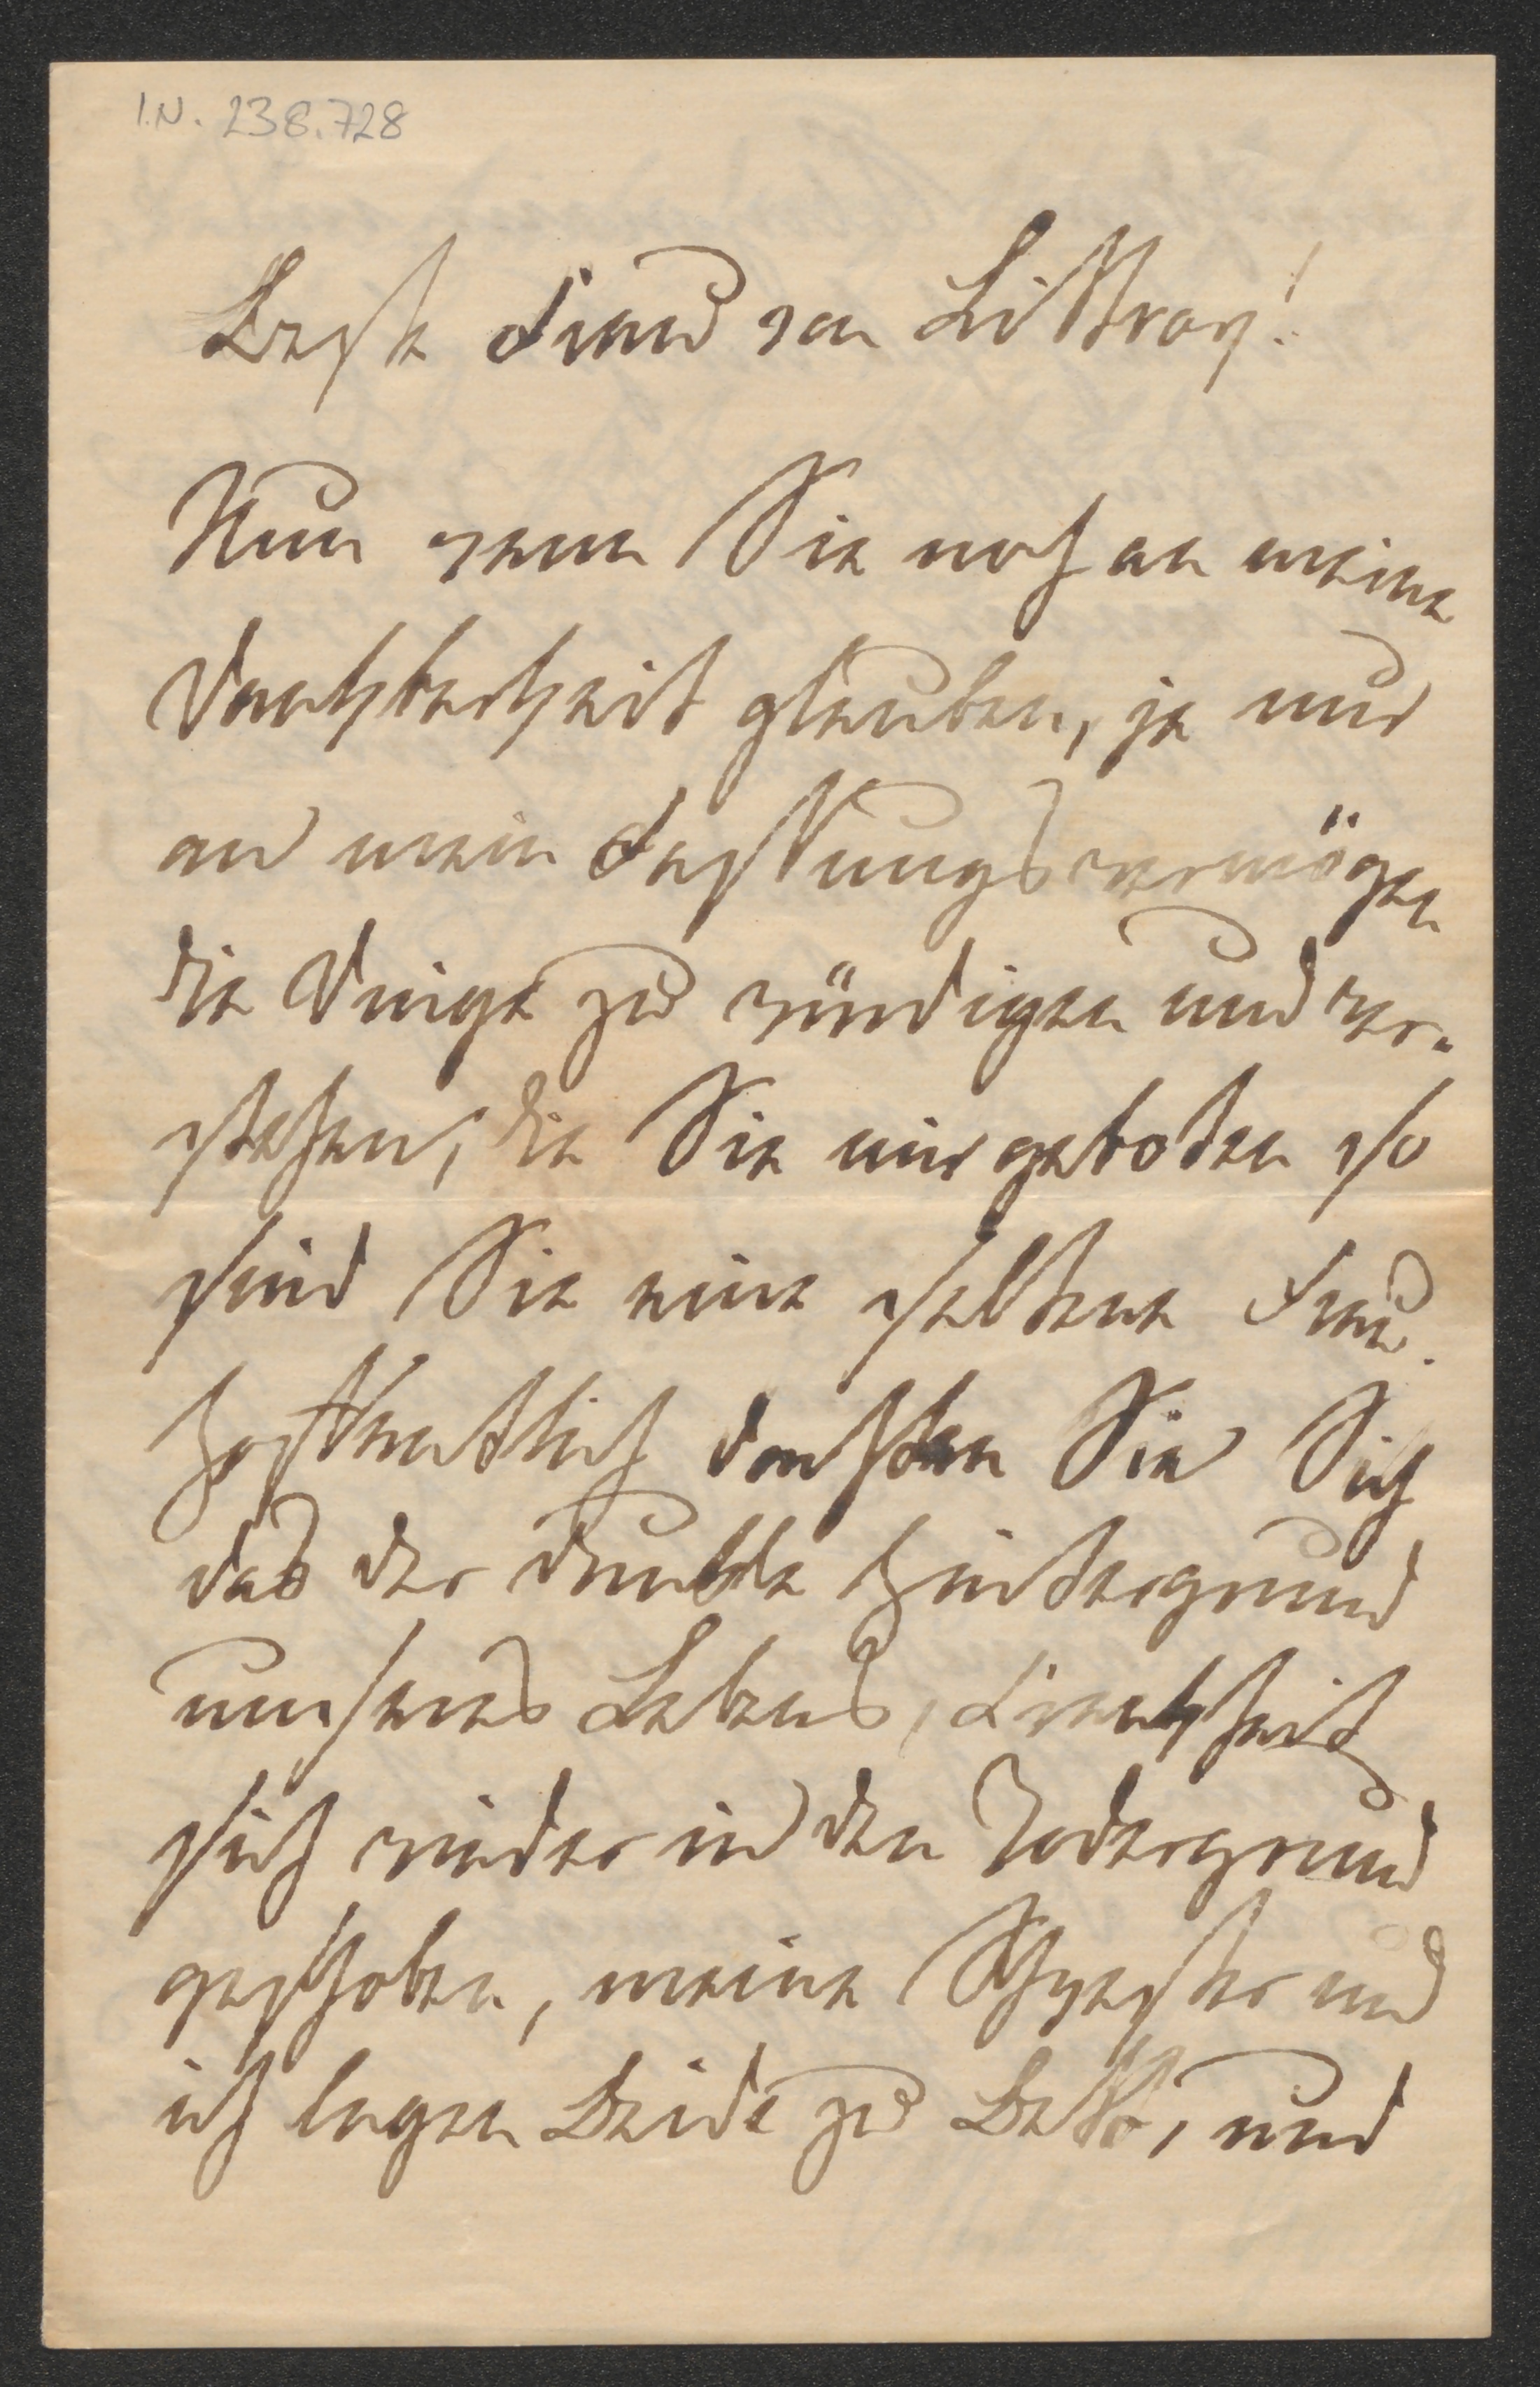 I.N. 238.728
Beste Frau von Littrow!
Nun wenn Sie noch an meine
Dankbarkeit glauben, ja nur
an mein Fassungsvermögen
die Dinge zu würdigen und ver-
stehen, die Sie mir geboten so
sind Sie eine seltene Frau.
Hoffentlich dachten Sie Sich
das der dunkle Hintergrund
unseres Lebens, Krankheit
sich wieder in den Vordergrund
geschoben, meine Schwester und
ich lagen Beide zu Bett, und